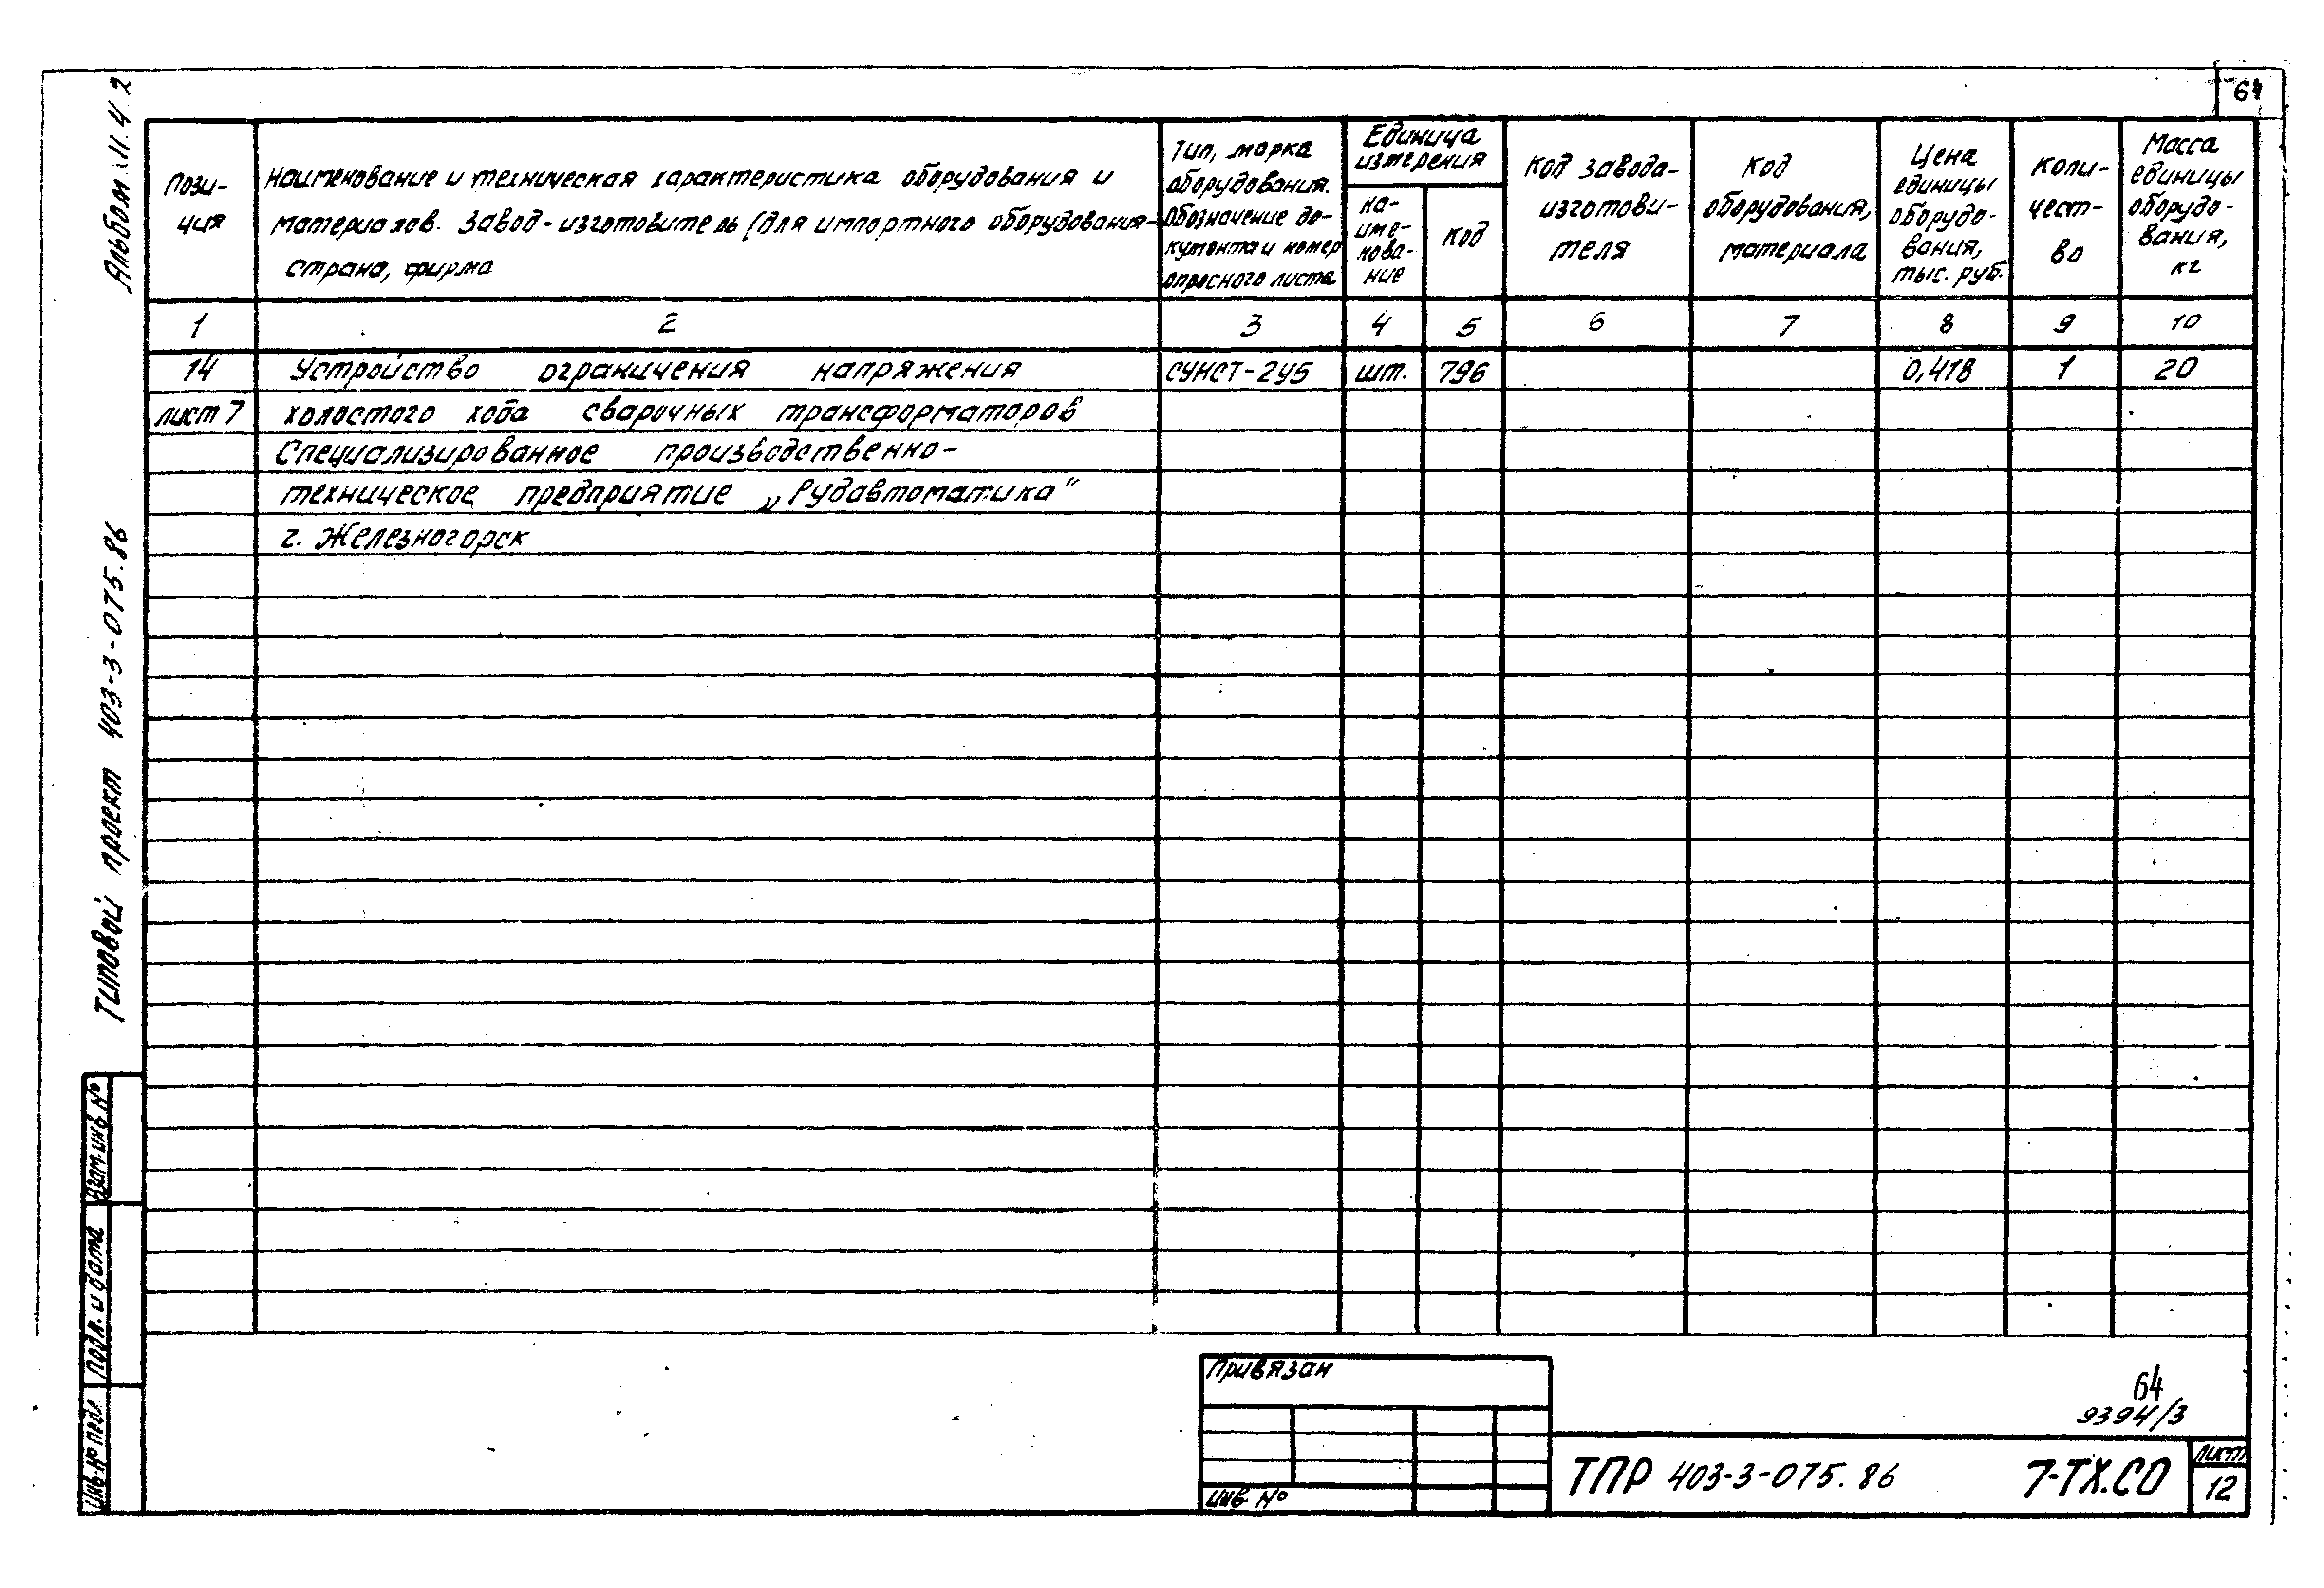 64
Альбом 11.4.2
Типовой проект 403-3-075.86
Пози-
ция
Наименование и техническая характеристика оборудования и
материалов. Завод-изготовитель (для импортного оборудования-
страна, фирма
Тип, марка
оборудования.
Обозначение до-
кумента и номер
опросного листа
Единица
измерения
на-
име-
нова-
ние
Код
Код завода-
изготови-
теля
Код
оборудования,
материала
Цена
единицы
оборудо-
вания,
тыс. руб.
Коли-
чест-
во
Масса
единицы
оборудо-
вания,
кг
1 2 3 4 5 6 7 8 9 10
14 Устройство ограничения напряжения СУНСТ-2У5 шт. 796 0,418 1 20
лист 7 холостого хода сварочных трансформаторов
Специализированное производственно-
техническое предприятие „Рудавтоматика"
г. Железногорск
Взам. инв. №
Подп. и дата
Инв. № подл.
Привязан
Инв №
64
9394/3
ТПР 403-3-075.86 7-ТХ.СО
Лист
12